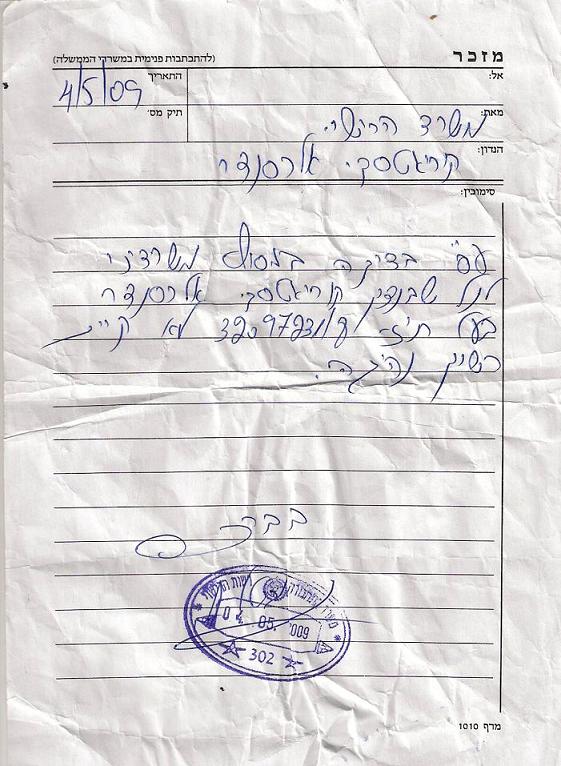 מזכר
(להתכתבות פנימית במשרדי הממשלה)
אל:
התאריך
4/5/09
מאת:
משרד הרישוי.
תיק מס׳
הנדון:
אלכסנדר
סימוכין:
עפ"י בדיקה במסוף משרדינו
אלכסנדר
בעל ת.ז. לא קיים
רישיון נהיגה.
בברכה
04. 05. 009
302
מדף 1010